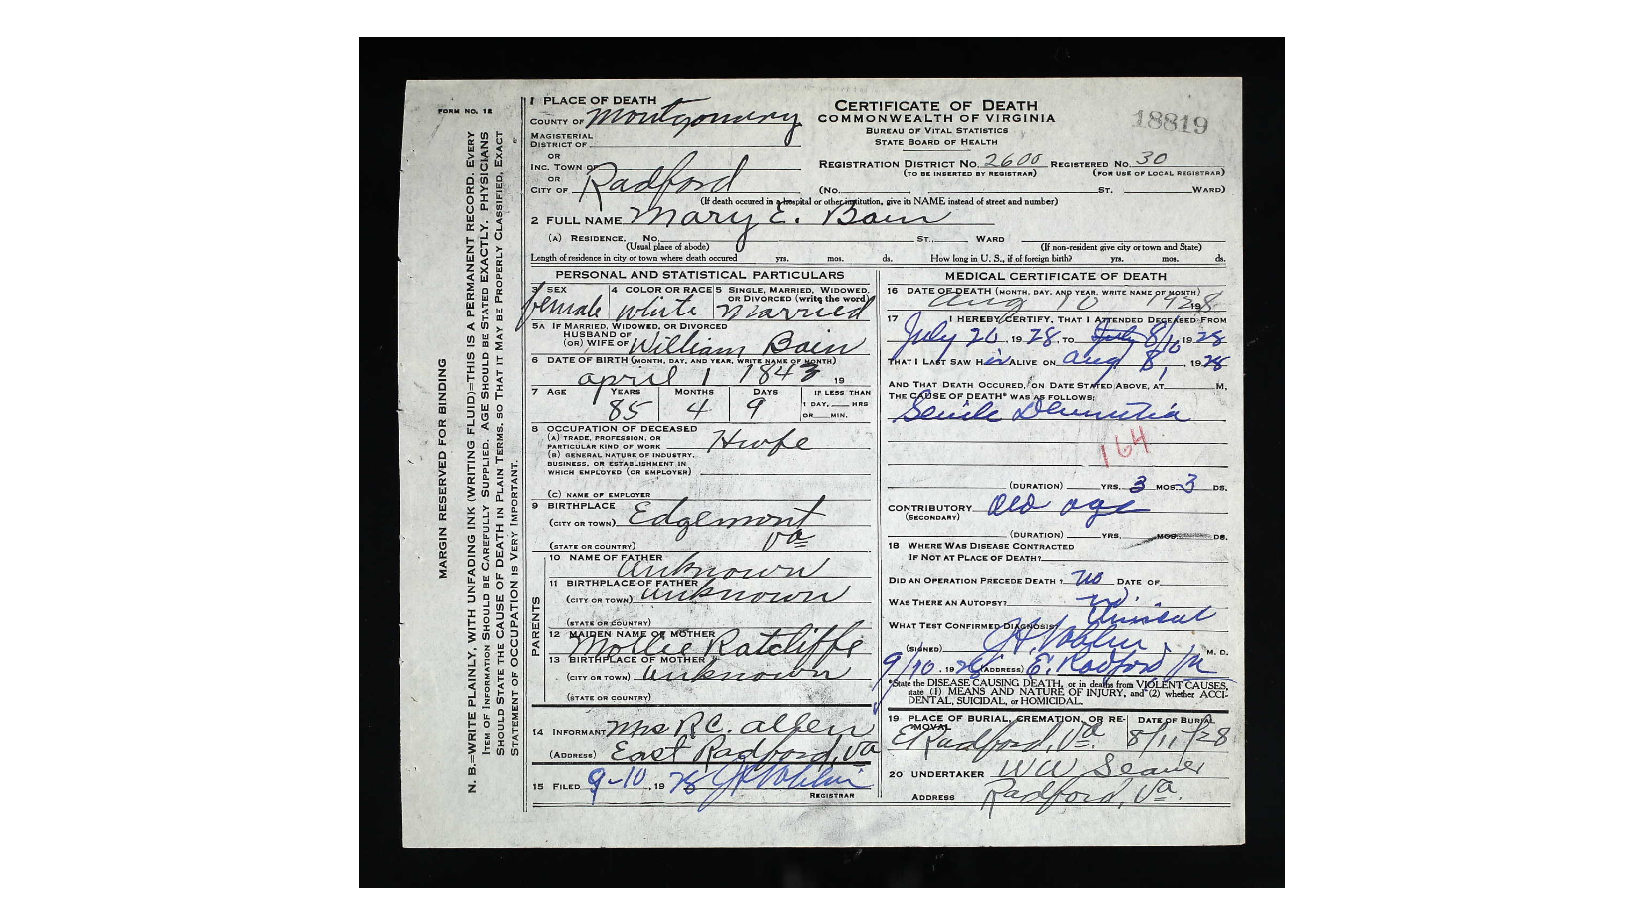 FORM NO. 1E
MARGIN RESERVED FOR BINDING
N. B.=WRITE PLAINLY, WITH UNFADING INK (WRITING FLUID)=THIS IS A PERMANENT RECORD. EVERY
ITEM OF INFORMATION SHOULD BE CAREFULLY SUPPLIED. AGE SHOULD BE STATED EXACTLY. PHYSICIANS
SHOULD STATE THE CAUSE OF DEATH IN PLAIN TERMS, SO THAT IT MAY BE PROPERLY CLASSIFIED. EXACT
STATEMENT OF OCCUPATION IS VERY IMPORTANT.
CERTIFICATE OF DEATH
COMMONWEALTH OF VIRGINIA
BUREAU OF VITAL STATISTICS
STATE BOARD OF HEALTH
18819
1 PLACE OF DEATH
COUNTY OF Montgomery
MAGISTERIAL
DISTRICT OF
OR
INC. TOWN OF
OR
CITY OF Radford
REGISTRATION DISTRICT NO. 2600 REGISTERED NO. 30
(TO BE INSERTED BY REGISTRAR) (FOR USE OF LOCAL REGISTRAR)
(NO. ST. WARD)
(If death occured in a hospital or other institution, give its NAME instead of street and number)
2 FULL NAME Mary E. Bain
(A) RESIDENCE. NO. ST. WARD
(Usual place of abode) (If non-resident give city or town and State)
Length of residence in city or town where death occured yrs. mos. ds. How long in U. S., if of foreign birth? yrs. mos. ds.
PERSONAL AND STATISTICAL PARTICULARS
3 SEX 4 COLOR OR RACE 5 SINGLE, MARRIED, WIDOWED,
OR DIVORCED (write the word)
female white Married
5A IF MARRIED, WIDOWED, OR DIVORCED
HUSBAND OF
(OR) WIFE OF William Bain
6 DATE OF BIRTH (MONTH, DAY, AND YEAR, WRITE NAME OF MONTH)
April 1 1843 19
7 AGE YEARS MONTHS DAYS IF LESS THAN
1 DAY, HRS
OR MIN.
85 4 9
8 OCCUPATION OF DECEASED
(A) TRADE, PROFESSION, OR
PARTICULAR KIND OF WORK Hwfe
(B) GENERAL NATURE OF INDUSTRY,
BUSINESS, OR ESTABLISHMENT IN
WHICH EMPLOYED (OR EMPLOYER)
(C) NAME OF EMPLOYER
9 BIRTHPLACE
(CITY OR TOWN) Edgemont
(STATE OR COUNTRY) Va
PARENTS
10 NAME OF FATHER Unknown
11 BIRTHPLACE OF FATHER
(CITY OR TOWN) Unknown
(STATE OR COUNTRY)
12 MAIDEN NAME OF MOTHER
Mollie Ratcliffe
13 BIRTHPLACE OF MOTHER
(CITY OR TOWN) Unknown
(STATE OR COUNTRY)
14 INFORMANT Mrs R.C. Allen
(ADDRESS) East Radford, Va
15 FILED 9-10, 1928
REGISTRAR
MEDICAL CERTIFICATE OF DEATH
16 DATE OF DEATH (MONTH, DAY, AND YEAR, WRITE NAME OF MONTH)
Aug 10 1928 19
17 I HEREBY CERTIFY, THAT I ATTENDED DECEASED FROM
July 20, 1928, TO July 8/10, 1928
THAT I LAST SAW H ALIVE ON Aug 8, 1928
AND THAT DEATH OCCURED, ON DATE STATED ABOVE, AT M.
THE CAUSE OF DEATH* WAS AS FOLLOWS:
Senile Dementia
164
(DURATION) YRS. 3 MOS. 3 DS.
CONTRIBUTORY Old age
(SECONDARY)
(DURATION) YRS. MOS. DS.
18 WHERE WAS DISEASE CONTRACTED
IF NOT AT PLACE OF DEATH?
DID AN OPERATION PRECEDE DEATH? no DATE OF
WAS THERE AN AUTOPSY? no
WHAT TEST CONFIRMED DIAGNOSIS? Clinical
(SIGNED) M. D.
9/10, 1928 (ADDRESS) E. Radford Va
*State the DISEASE CAUSING DEATH, or in deaths from VIOLENT CAUSES,
state (1) MEANS AND NATURE OF INJURY, and (2) whether ACCI-
DENTAL, SUICIDAL, or HOMICIDAL.
19 PLACE OF BURIAL, CREMATION, OR RE- DATE OF BURIAL
MOVAL
E Radford, Va. 8/11/28
20 UNDERTAKER W W Seaver
ADDRESS Radford, Va.